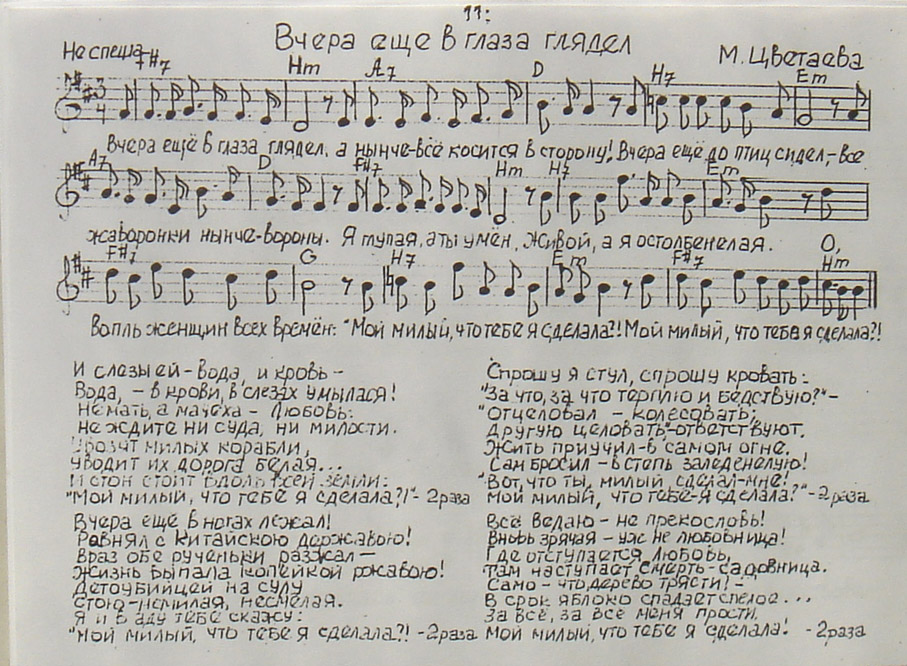 11:
Вчера еще в глаза глядел
Не спеша
М. Цветаева
F#7 Hm A7 D H7 Em
3
4
Вчера ещё в глаза глядел, а нынче-всё косится в сторону! Вчера ещё до птиц сидел,-все
A7 D F#7 Hm H7 Em
жаворонки нынче-вороны. Я глупая, а ты умён, Живой, а я остолбенелая. О,
F#7 G H7 Em F#7 Hm
вопль женщин всех времён: "Мой милый, что тебе я сделала?! Мой милый, что тебе я сделала?!
И слезы ей - вода, и кровь -
Вода, - в крови, в слезах умылася!
Не мать, а мачеха - Любовь:
Не ждите ни суда, ни милости.
Увозят милых корабли,
Уводит их дорога белая...
И стон стоит вдоль всей земли:
"Мой милый, что тебе я сделала?!" - 2 раза
Вчера ещё в ногах лежал!
Равнял с Китайскою державою!
Враз обе рученьки разжал -
Жизнь выпала копейкой ржавою!
Детоубийцей на суду
Стою - немилая, несмелая.
Я и в аду тебе скажу:
"Мой милый, что тебе я сделала?! - 2 раза
Спрошу я стул, спрошу кровать:
"За что, за что терплю и бедствую?" -
"Отцеловал - колесовать;
Другую целовать", - ответствуют.
Жить приучил - в самом огне.
Сам бросил - в степь заледенелую!
"Вот, что ты, милый, сделал - мне!
Мой милый, что тебе - я сделала?" - 2 раза
Всё ведаю - не прекословь!
Вновь зрячая - уж не любовница!
Где отступается Любовь,
Там наступает Смерть-садовница.
Само - что дерево трясти! -
В срок яблоко спадает спелое...
За всё, за всё меня прости,
Мой милый, что тебе я сделала! - 2 раза